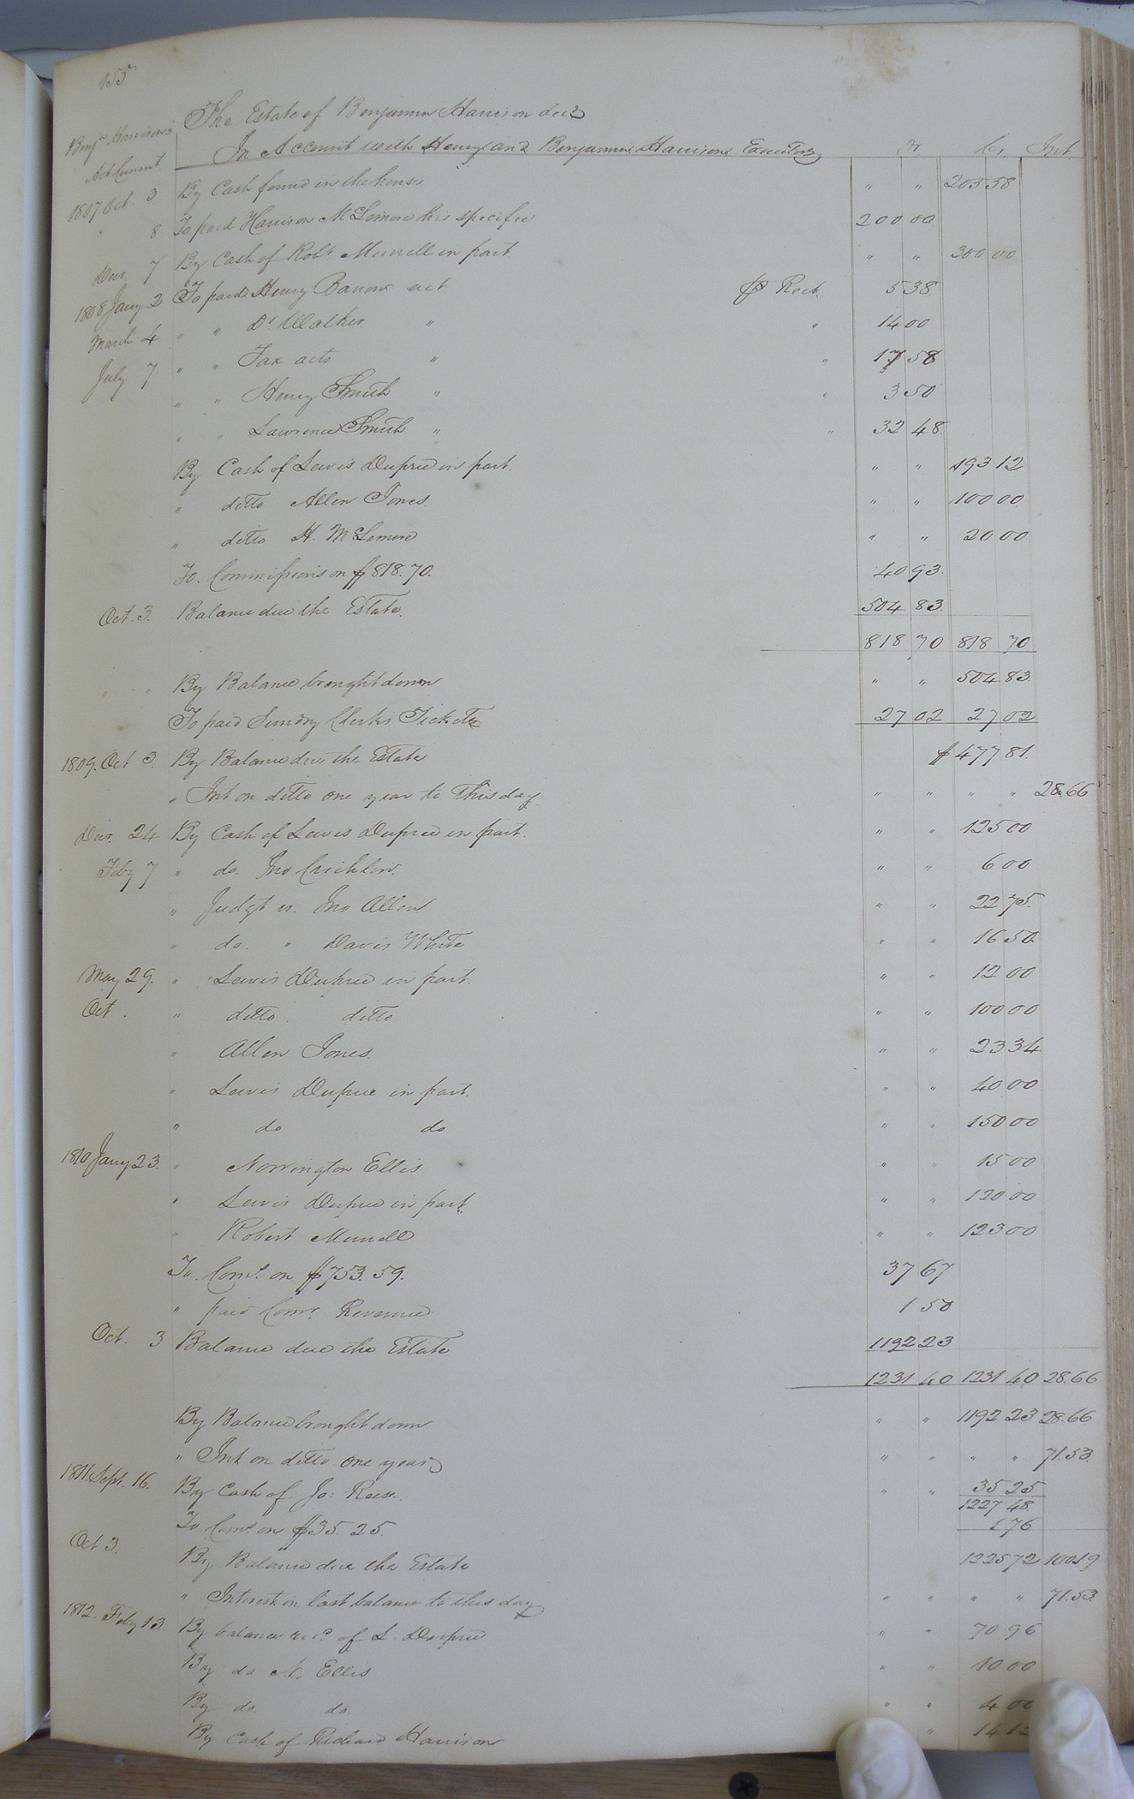 155
The Estate of Benjamin Harrison decd
Benjn Harrison's In Account with Henry and Benjamin Harrisons Executors Dr Cr Int
Act Current
1807 Oct 3 By Cash found in the house " " 205 58
" 8 To paid Harrison McLemore his specific 200 00
Decr 7 By Cash of Robt Murrell in part " " 300 00
1808 Jany 2 To paid Henry Barrow act p Rect 5 38
March 4 " " Dr Walker " " 14 00
July 7 " " Tax acts " " 17 58
" " Henry Smith " " 3 50
" " Lawrence Smith " " 32 48
By Cash of Lewis Dupree in part " " 193 12
" ditto Allen Jones " " 100 00
" ditto H. McLemore " " 20 00
To. Commissions on $818.70. 40 93
Oct. 3. Balance due the Estate. 504 83
818 70 818 70
" " By Balance brought down " " 504 83
To paid Sundry Clerks Tickets 27 02 27 02
1809. Oct 3. By Balance due the Estate $ 477 81
" Int on ditto one year to this day " " " " 28.66
Decr. 24 By Cash of Lewis Dupree in part. " " 125 00
Feby 7 " do. Jno Crichlow. " " 6 00
" Judgt vs. Jno Allen " " 22 75
" do. " Davis White " " 16 50
May 29. " Lewis Dupree in part. " " 12 00
Oct. " ditto ditto " " 100 00
" Allen Jones. " " 23 34
" Lewis Dupree in part. " " 40 00
" do do " " 150 00
1810 Jany 23. " Norrington Ellis " " 15 00
" Lewis Dupree in part. " " 120 00
" Robert Murrell " " 123 00
To. Coms. on $753.59. 37 67
" paid Comr. Revenue 1 50
Oct. 3 Balance due the Estate 1192 23
1231 40 1231 40 28.66
By Balance brought down " " 1192 23 28.66
" Int on ditto one year " " " " 71.53
1811. Sept. 16. By Cash of Jo: Reese. " " 35 25
1227 48
To Coms. on $35.25. 1 76
Oct 3. By Balance due the Estate 1225 72 100.19
" Interest on last balance to this day " " " " 71.53
1812. Feby 13. By balance recd. of L. Dupree " " 70 96
By do N. Ellis " " 10 00
By do do " " 4 00
By Cash of Richard Harrison " 14 12